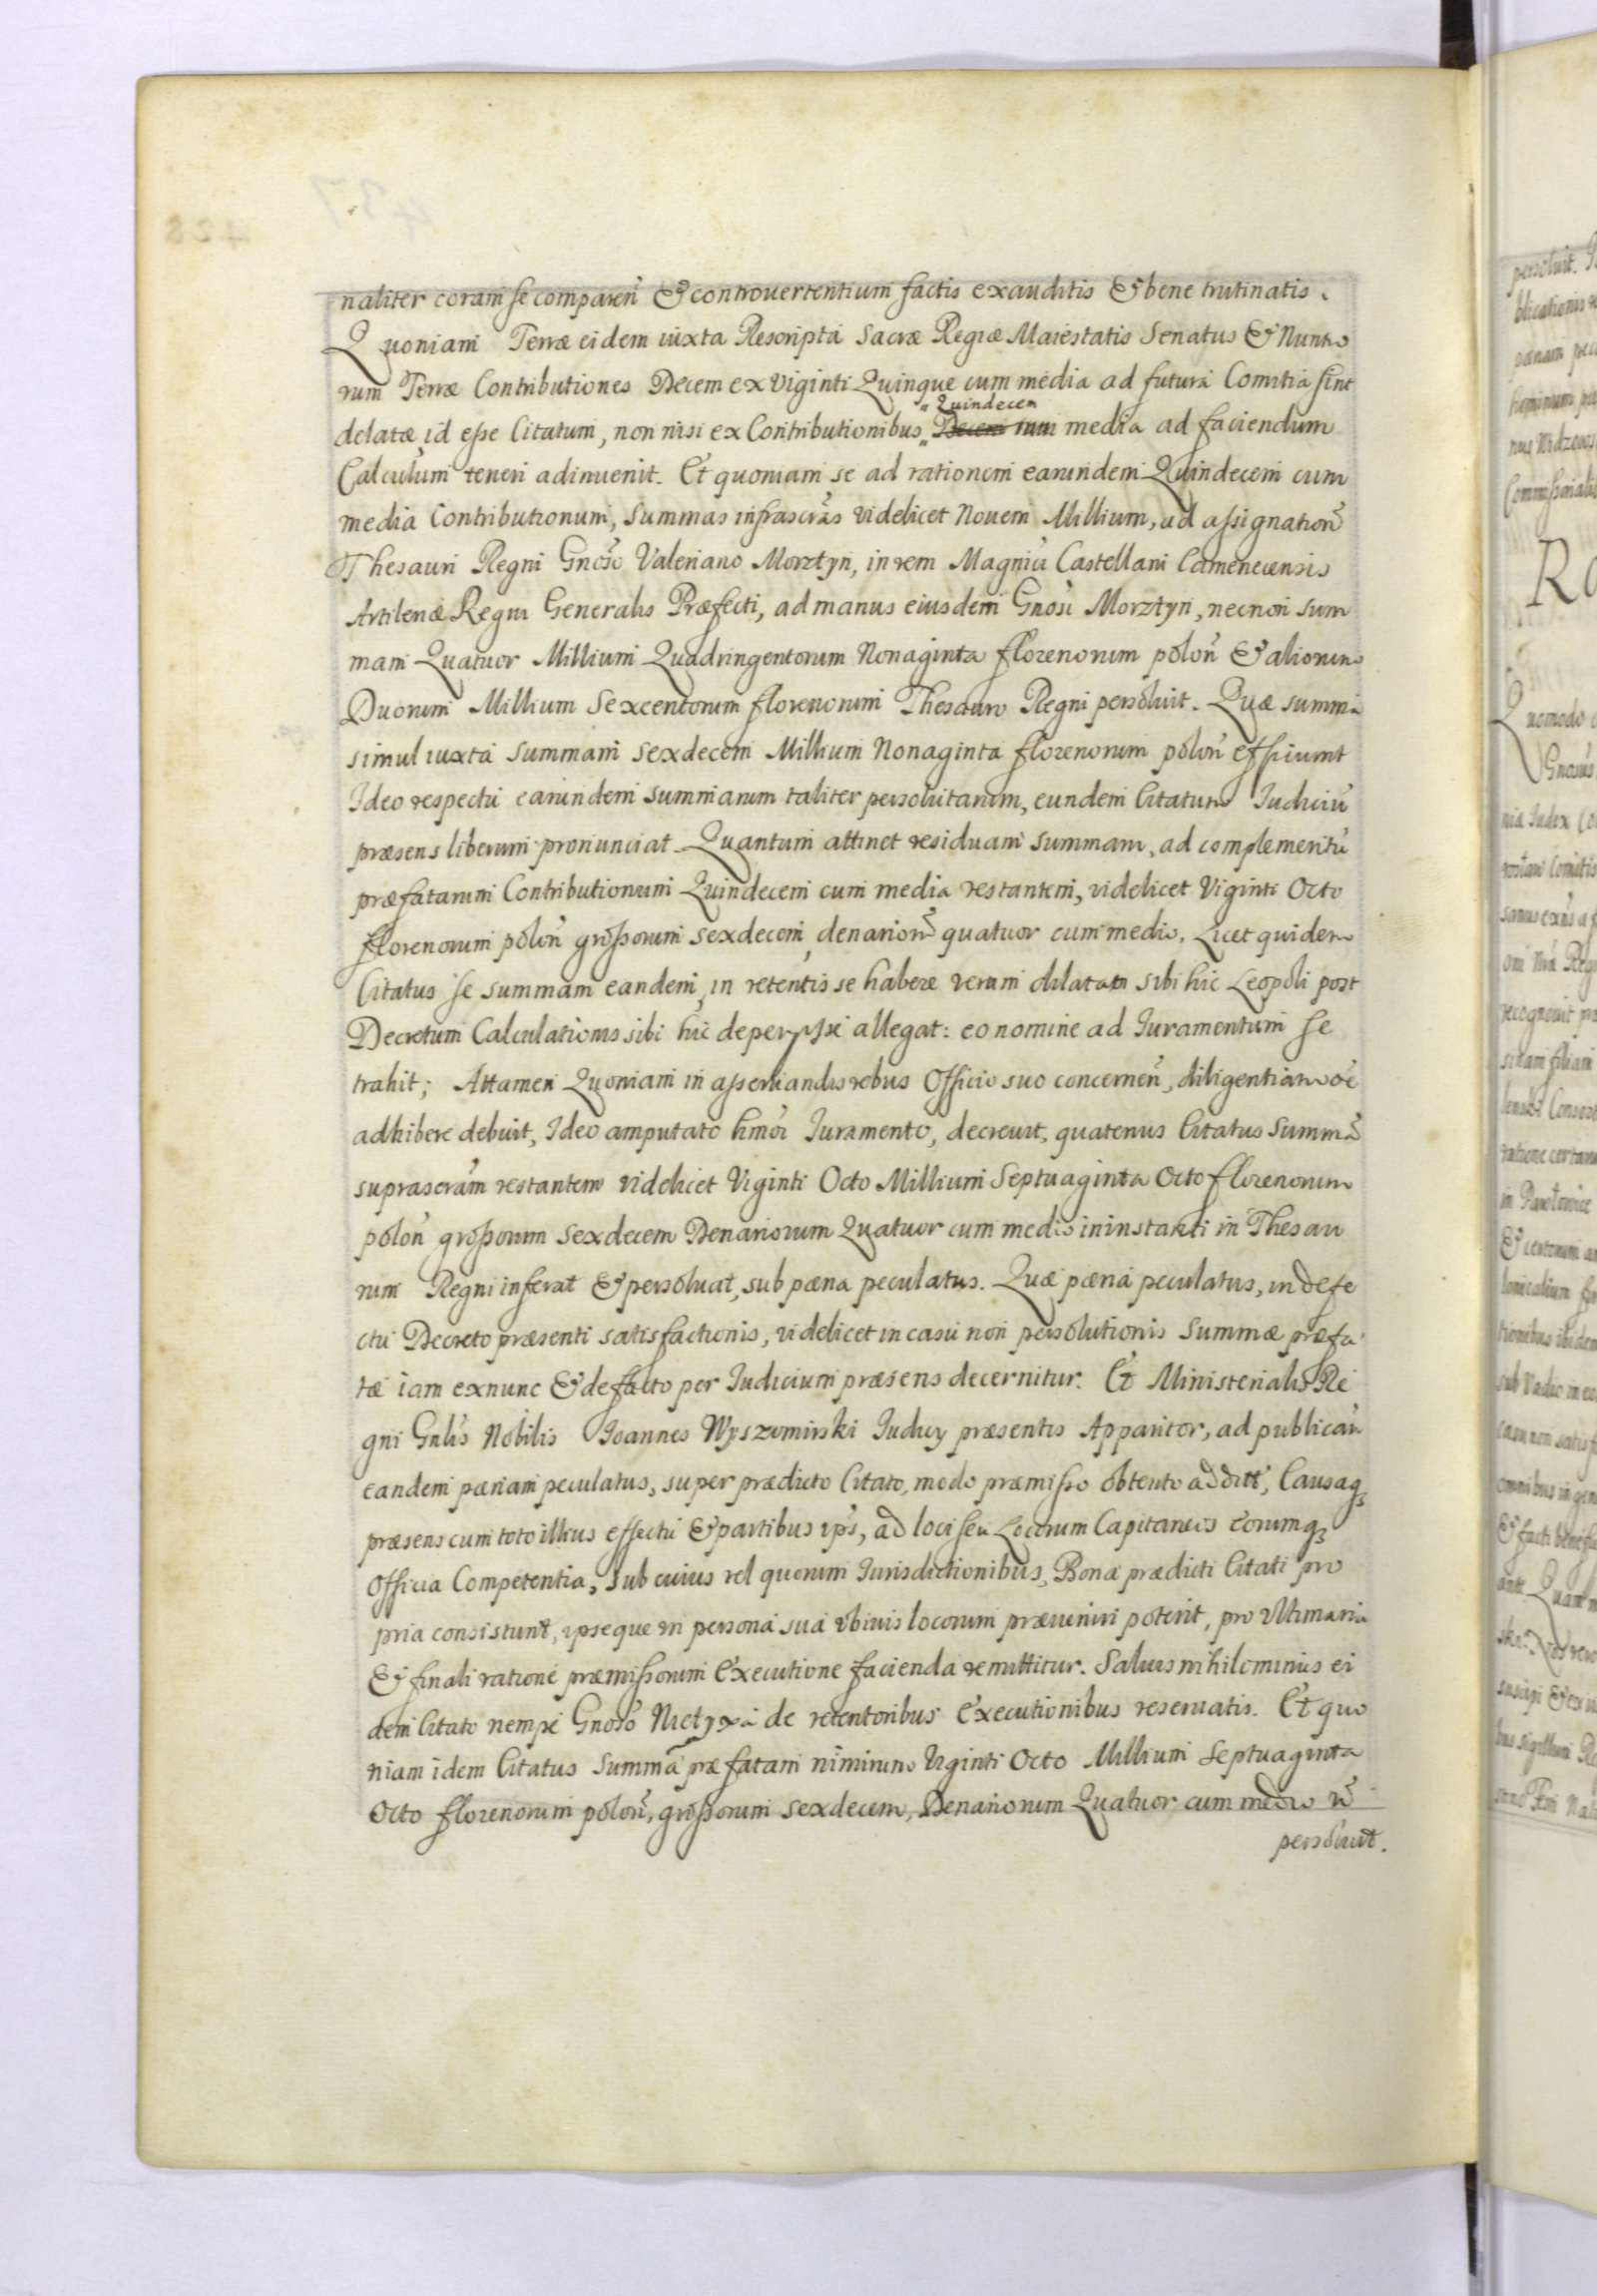 naliter coram se comparen̄ & controuertentium factis exauditis & bene trutinatis.
Quoniam Terræ eidem iuxta Rescripta Sacræ Regiæ Maiestatis Senatus & Nuntio
rum Terræ Contributiones Decem ex Viginti Quinque cum media ad futura Comitia sint
delatæ id eße Citatum, non nisi ex Contributionibus „ Quindecem „ Decem cum media ad faciendum
Calculum teneri adinuenit. Et quoniam se ad rationem earundem Quindecem cum
media Contributionum, Summas infrascr̃as videlicet Nouem Millium, ad aßignation̄
Thesauri Regni Gnoso Valeriano Morztyn, in rem Magnici Castellani Camenecensis
Artileriæ Regni Generalis Præfecti, ad manus eiusdem Gnosi Morztyn, necnon sum
mam Quatuor Millium Quadringentorum Nonaginta florenorum polon̄ & aliorum
Duorum Millium Sexcentorum florenorum Thesauro Regni persoluit. Quæ summa
simul iuxta summam sexdecem Millium Nonaginta florenorum polon̄ efficiunt
Ideo respectu earundem summarum taliter persolutarum, eundem Citatum Iudiciū
præsens liberum pronunciat. Quantum attinet residuam summam, ad complementū
præfatarum Contributionum Quindecem cum media restantem, videlicet Viginti Octo
florenorum polon̄ großorum sexdecem, denarior̄ quatuor cum medio. Licet quidem
Citatus se summam eandem, in retentis se habere verum dilatam sibi hic Leopoli post
Decretum Calculationis sibi hic deperysse allegat: eo nomine ad Iuramentum se
trahit; Attamen Quoniam in aßeruandis rebus Officio suo concernen̄, diligentiam oẽ
adhibere debuit, Ideo amputato hmoi Iuramento, decreuit, quatenus Citatus Summā
suprascrãm restantem videlicet Viginti Octo Millium Septuaginta Octo florenorum
polon̄ großorum sexdecem Denariorum Quatuor cum medio in instanti in Thesau
rum Regni inferat & persoluat, sub pæna peculatus. Quæ pæna peculatus, in defe
ctu Decreto præsenti satisfactionis, videlicet in casu non persolutionis Summæ præfa
tæ iam exnunc & de facto per Iudicium præsens decernitur. Et Ministerialis Re
gni Gnlis Nobilis Ioannes Wyszominski Iudicy præsentis Apparitor, ad publican̄
eandem pænam peculatus, super prædicto Citato, modo præmißo obtento additr̄, Causaq₃
præsens cum toto illius effectu & partibus ip̄s, ad loci seu Locorum Capitaneos eorumq₃
Officia Competentia, sub cuius vel quorum Iurisdictionibus, Bona prædicti Citati pro
pria consistunt, ipseque in persona sua vbiuis locorum præueniri poterit, pro vltimaria
& finali ratione præmißorum Executione facienda remittitur. Saluis nihilominus ei
dem Citato nempe Gnoso Nietyxa de retentoribus Executionibus reseruatis. Et quo
niam idem Citatus Summā præfatam nimirum Viginti Octo Millium Septuaginta
Octo florenorum polon̄, großorum sexdecem, Denariorum Quatuor cum medio n̄
persoluit.